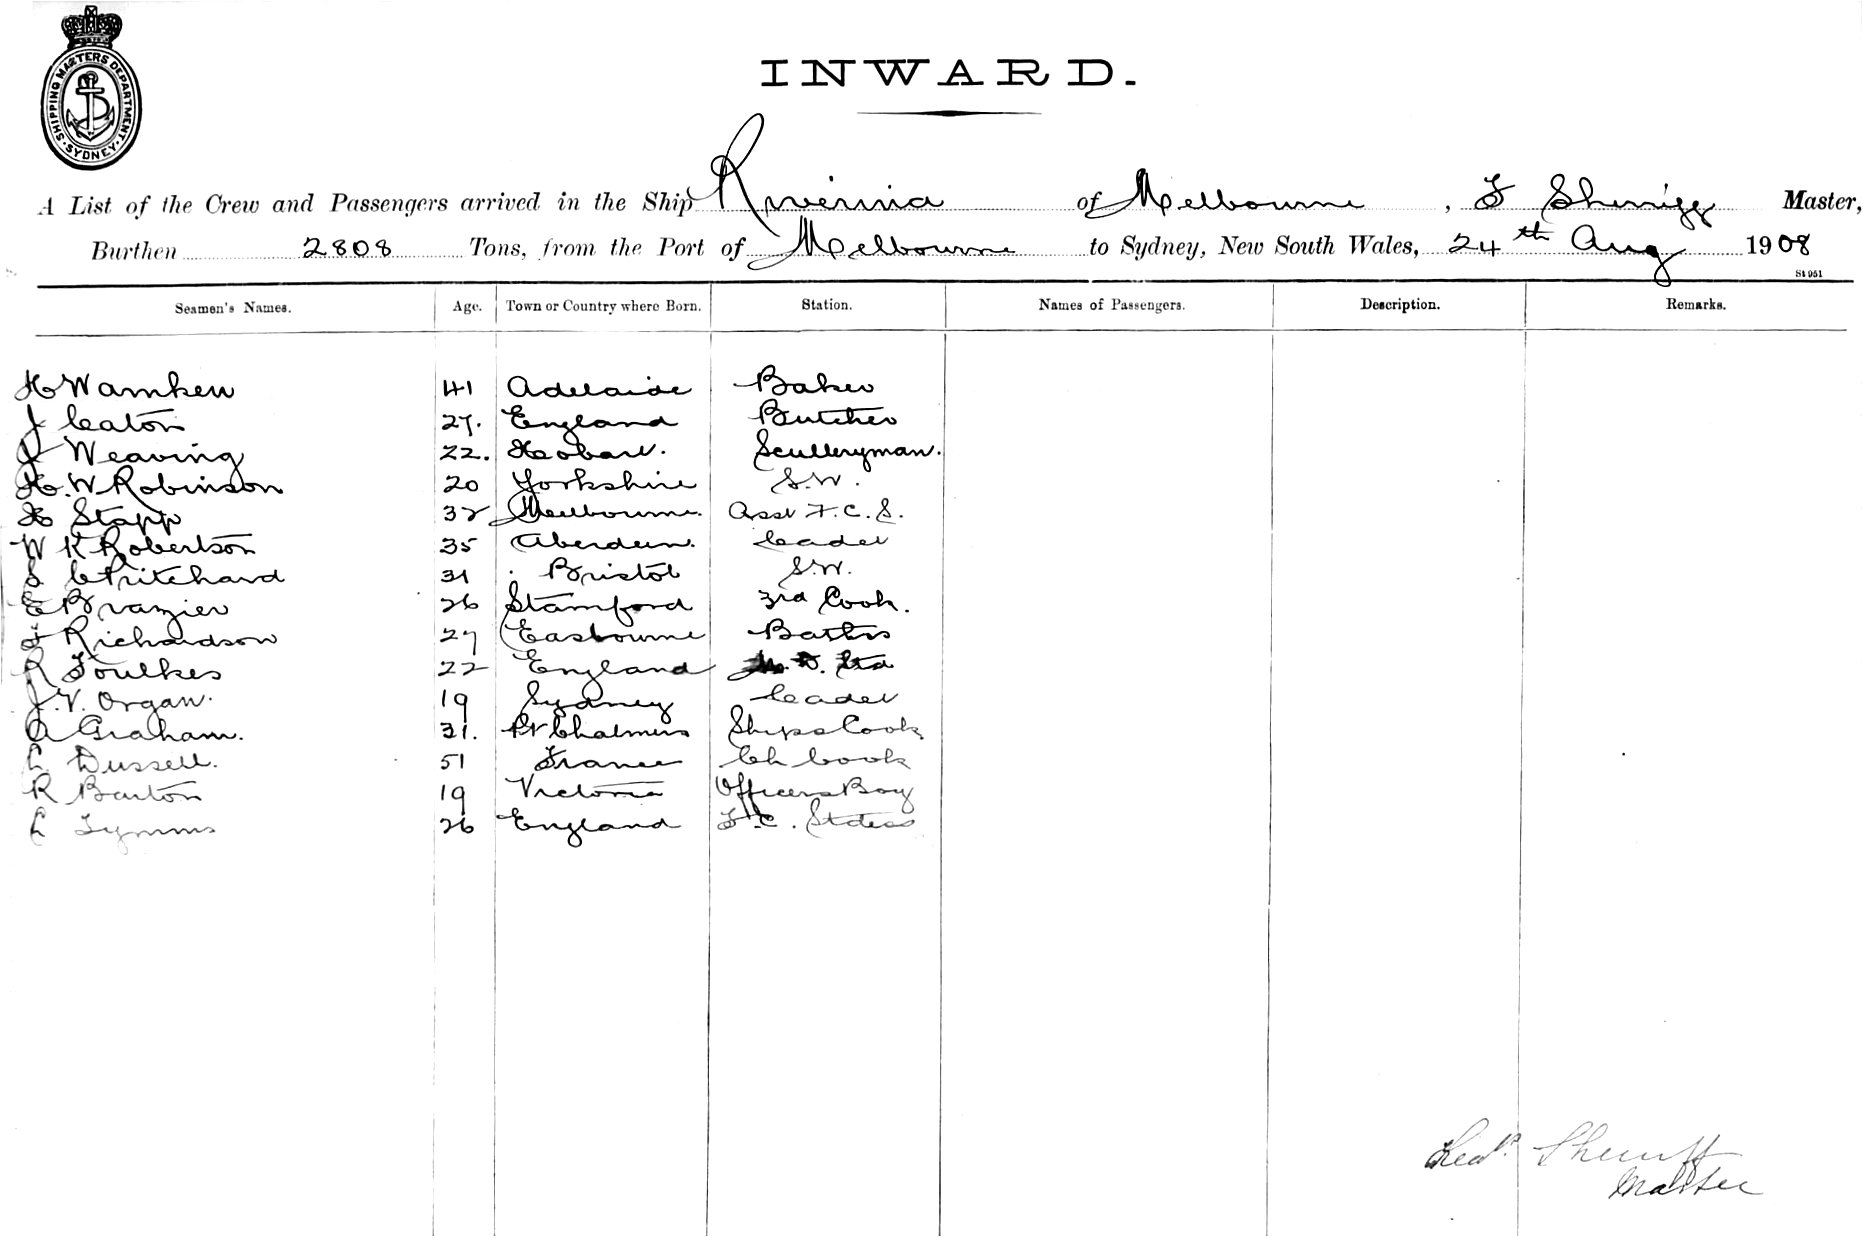 SHIPPING MASTERS DEPARTMENT. SYDNEY.
INWARD.
A List of the Crew and Passengers arrived in the Ship Riverina of Melbourne, F Sherriff Master,
Burthen 2808 Tons, from the Port of Melbourne to Sydney, New South Wales, 24th Aug 1908
St 951
Seamen's Names. Age. Town or Country where Born. Station. Names of Passengers. Description. Remarks.
H Warnken 41 Adelaide Baker
J Caton 27. England Butcher
Weaving 22. Hobart. Sculleryman.
H. W Robinson 20 Yorkshire S.W.
H Stapp 32 Melbourne. Asst F. C. S.
W K Robertson 35 Aberdeen. Cader
S C Pritchard 31 Bristol S.W.
E Brazier 26 Stamford 3rd Cook.
F Richardson 27 Easbourne Baths
R Foulkes 22 England Std
J. V. Organ. 19 Sydney Cader
A Graham. 31. Pt Chalmers Ships Cook
L Dussell. 51 France Ch Cook
R Barton 19 Victoria Officers Boy
L Tymms 26 England F.C. Stdess
Fredk. Sherriff
Master